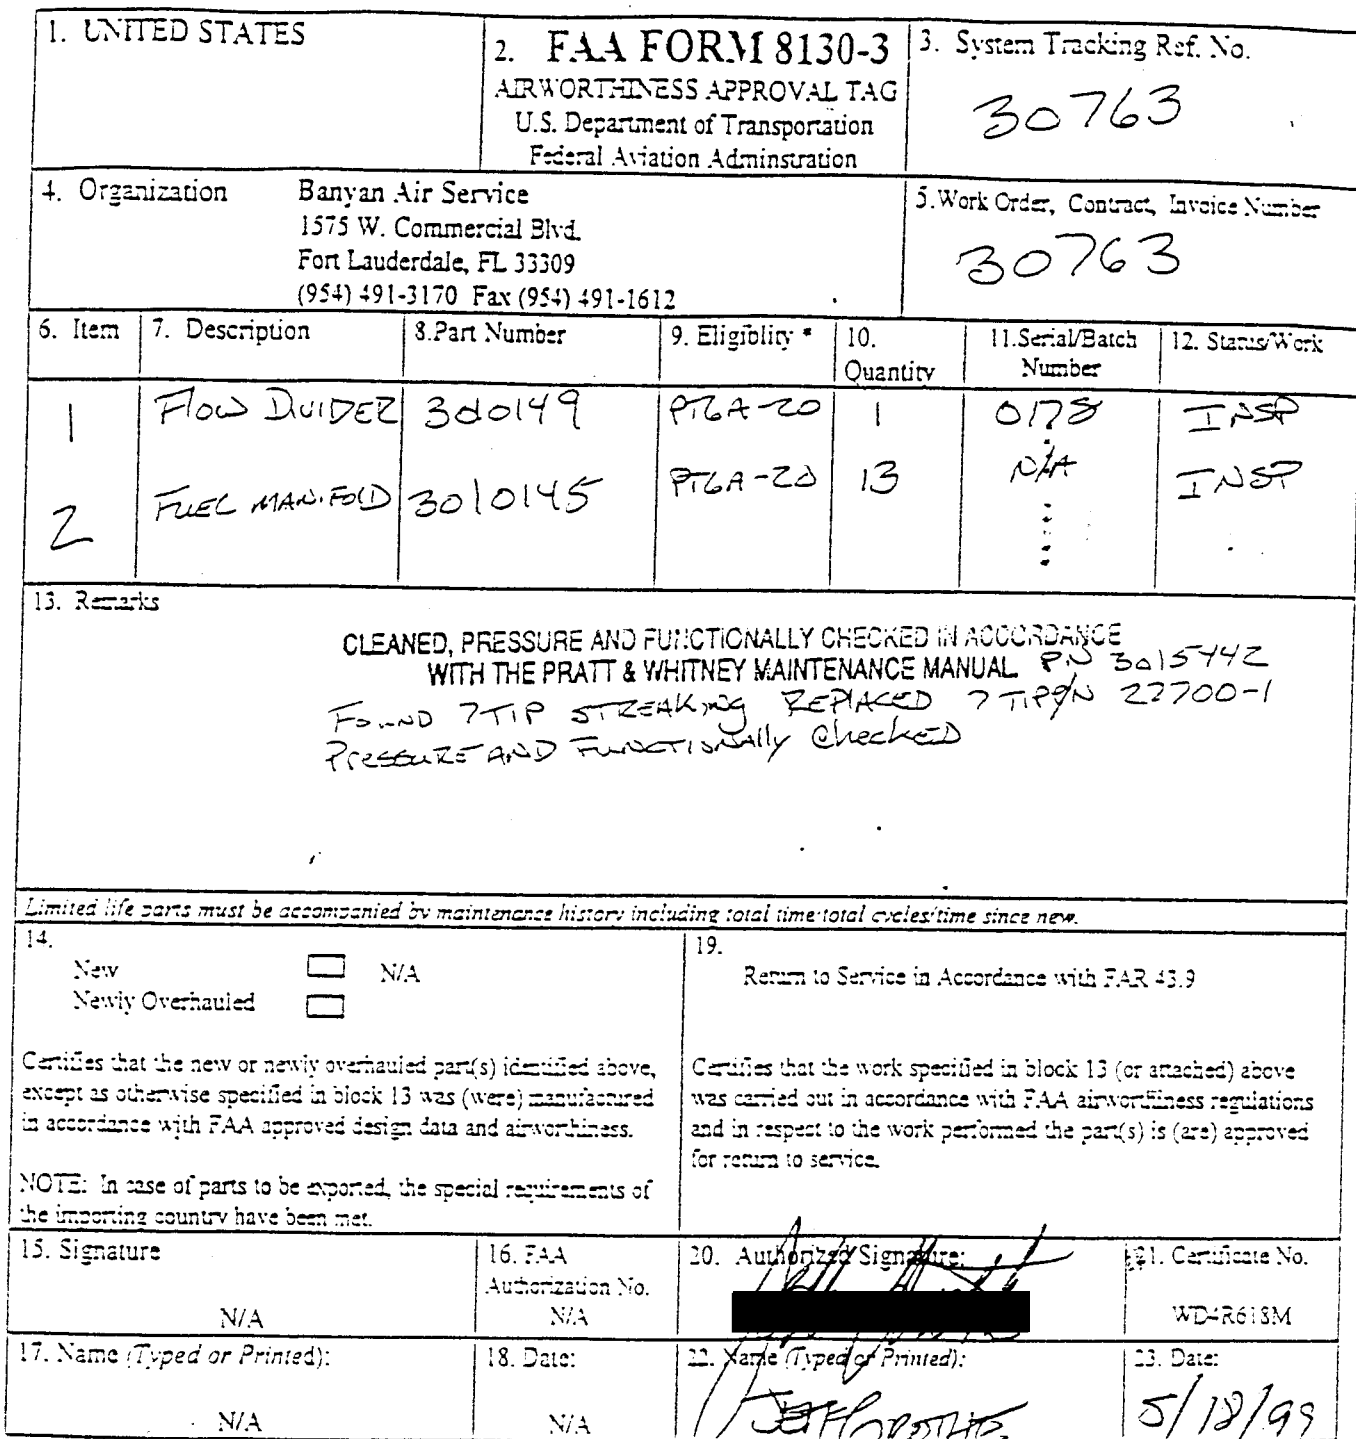 1. UNITED STATES
2. FAA FORM 8130-3
AIRWORTHINESS APPROVAL TAG
U.S. Department of Transportation
Federal Aviation Adminstration
3. System Tracking Ref. No.
30763
4. Organization Banyan Air Service
1575 W. Commercial Blvd.
Fort Lauderdale, FL 33309
(954) 491-3170 Fax (954) 491-1612
5.Work Order, Contract, Invoice Number
30763
6. Item 7. Description 8.Part Number 9. Eligiblity * 10. Quantity 11.Serial/Batch Number 12. Status/Work
1 FLOW DIVIDER 3010149 PT6A-20 1 0178 INSP
2 FUEL MANIFOLD 3010145 PT6A-20 13 N/A INSP
13. Remarks
CLEANED, PRESSURE AND FUNCTIONALLY CHECKED IN ACCORDANCE
WITH THE PRATT & WHITNEY MAINTENANCE MANUAL. PN 3015442
FOUND 7 TIP STREAKING REPLACED 7 TIP P/N 22700-1
PRESSURE AND FUNCTIONALLY CHECKED
Limited life parts must be accompanied by maintenance history including total time/total cycles/time since new.
14.
New N/A
Newly Overhauled
Certifies that the new or newly overhauled part(s) identified above,
except as otherwise specified in block 13 was (were) manufactured
in accordance with FAA approved design data and airworthiness.
NOTE: In case of parts to be exported, the special requirements of
the importing country have been met.
19.
Return to Service in Accordance with FAR 43.9
Certifies that the work specified in block 13 (or attached) above
was carried out in accordance with FAA airworthiness regulations
and in respect to the work performed the part(s) is (are) approved
for return to service.
15. Signature
N/A
16. FAA
Authorization No.
N/A
20. Authorized Signature:
21. Certificate No.
WD4R618M
17. Name (Typed or Printed):
N/A
18. Date:
N/A
22. Name (Typed or Printed):
23. Date:
5/18/99